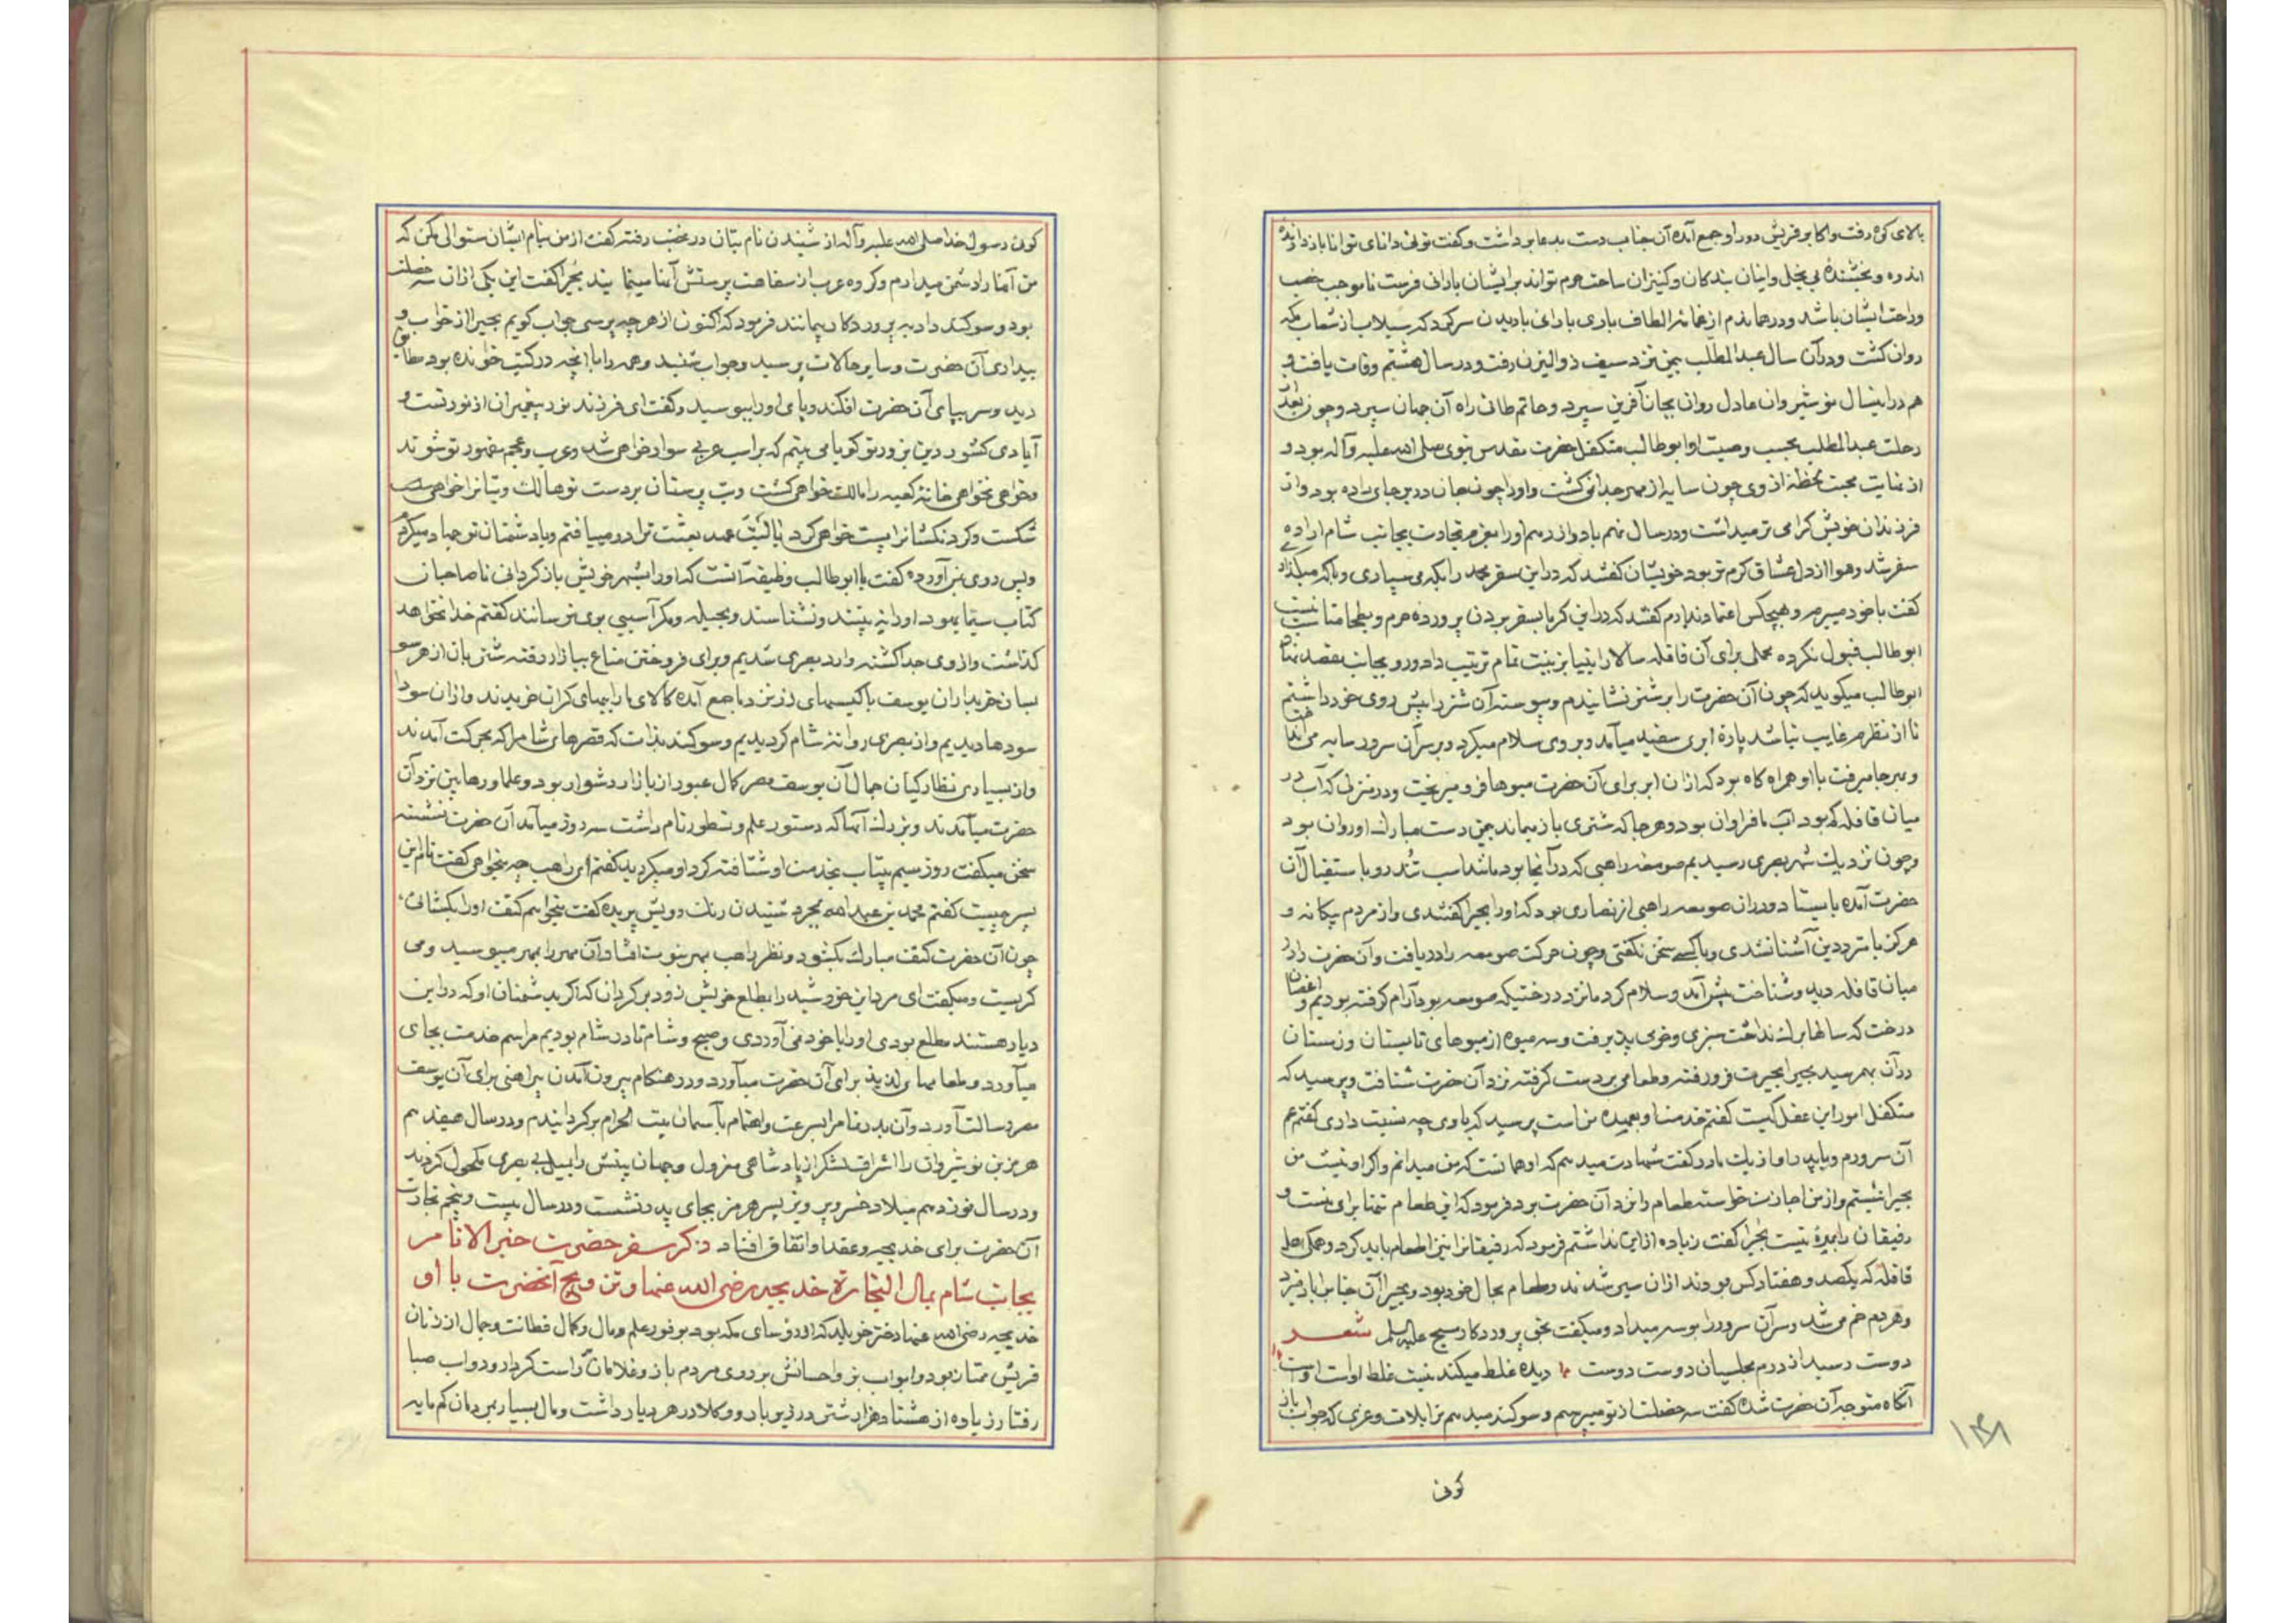 بالای کوه رفت و اکابر قریش دور او جمع آمده آن جناب دست بدعا برداشت و گفت توئی دانای توانا باز دارنده
اندوه و بخشندهٔ بی بخل و اینان بندکان و کنیزان ساحت حرم تواند بر ایشان بارانی فرست تا موجب خصب
و راحت ایشان باشد و در همان دم از غمائم الطاف باری بارانی باریدن سر کرد که سیلاب از شعاب مکه
روان کشت و در آن سال عبد المطلب بیمن نزد سیف ذو الیزن رفت و در سال هشتم وفات یافت و
هم در اینسال نوشیروان عادل روان بجان آفرین سپرد و حاتم طائی راه آن جهان سپرد و چون بعد از
رحلت عبد المطلب بحسب وصیت او ابوطالب متکفل حضرت مقدس نبوی صلی الله علیه و آله بود و
از غایت محبت لحظهٔ از وی چون سایه از مهر جدا نمی کشت و او را چون جان در بر جای داده بود و از
فرزندان خویش کرامی تر میداشت و در سال نهم یا دوازدهم او را بعزم تجارت بجانب شام ارادهٔ
سفر شد و هوا از دل عشاق کرم تر بود خویشان کفتند که در این سفر محمد را بکه می سپاری و با که میکذاری
کفت با خود میبرم و بهیچکس اعتماد ندارم کفتند که در این کرما بسفر بردن پروردهٔ حرم و بطحا مناسب نیست
ابوطالب قبول نکرده محملی برای آن قافله سالار انبیا بزینت تمام ترتیب داد و رو بجانب مقصد نهاد
ابوطالب میکوید که چون آن حضرت را بر شتر نشانیدم و پیوسته آن شتر را پیش روی خود داشتم
تا از نظرم غایب نباشد پارهٔ ابری سفید میآمد و بر وی سلام میکرد و بر سر آن سرور سایه می انداخت
و بهر جا میرفت با او همراه کاه بود که از آن ابر برای آن حضرت میوها فرو میریخت و در منزلی که آب در
میان قافله کم بود آب ما فراوان بود و هر جا که شتری باز میماند بیمن دست مبارک او روان بود
و چون نزدیک شهر بصری رسیدیم صومعهٔ راهبی که در آنجا بود مانند اسب تندرو باستقبال آن
حضرت آمده بایستاد و در آن صومعه راهبی از نصاری بود که او را بحیرا کفتندی و از مردم بیکانه و
هرکز با مترددین آشنا نشدی و با کسی سخن نکفتی و چون حرکت صومعه را دریافت و آن حضرت را در
میان قافله دید و شناخت پیش آمد و سلام کرد ما نزد درختیکه صومعه بود آرام کرفته بودیم و اغصان
درخت که سالها برک نداشت سبزی و خرمی پذیرفت و سه میوه از میوهای تابستان و زمستان
در آن بهم رسید بحیرا بحیرت فرو رفته و طعامی بر دست کرفته نزد آن حضرت شتافت و پرسید که
متکفل امور این عقل کیست کفتم خدمتها و بعهدهٔ من است پرسید که با وی چه نسبت داری کفتم عم
آن سرورم و با پدر او از یک مادر کفت شهادت میدهم که او همانست که من میدانم و اکر او نیست من
بحیرا نیستم و از من اجازت خواسته طعام را نزد آن حضرت برد فرمود که این طعام تنها برای منست و
رفیقان را بهرهٔ نیست بحیرا کفت زیاده از این نداشتم فرمود که رفیقانرا نیز اطعام باید کرد و همکی اهل
قافله که یکصد و هفتاد کس بودند از آن سیر شدند و طعام بحال خود بود و بحیرا آن جناب را باد میزد
و هر دم خم می شد و سر آن سرور را بوسه میداد و میکفت بحق پروردکار مسیح علیه السلم شعر
دوست رسید از درم مجلسیان دوست دوست دیده غلط میکند نیست غلط اوست اوست
آنکاه متوجه آن حضرت شده کفت سه خصلت از تو میپرسم و سوکند میدهم ترا بلات و عزی که جواب باز
کوئی
۱۴۸
کوئی رسول خدا صلی الله علیه و آله از شنیدن نام بتان در غضب رفته کفت از من بنام ایشان سئوالی مکن که
من آنها را دشمن میدارم و کروه عرب از سفاهت پرستش آنها مینمایند بحیرا کفت این یکی از آن سه خصلت
بود و سوکند داد به پروردکار بیمانند فرمود که اکنون از هر چه پرسی جواب کویم بحیرا از خواب و
بیداری آن حضرت و سایر حالات پرسید و جواب شنید و همه را با آنچه در کتب خوانده بود مطابق
دید و سر بپای آن حضرت افکند و پای او را ببوسید و کفت ای فرزند نور پیغمبران از نور تست و
آبادی کشور دین بزور تو کویا می بینم که بر اسب عربی سوار خواهی شد و عرب و عجم مقهور تو شوند
و خواهی نخواهی خانهٔ کعبه را مالک خواهی کشت و بت پرستان بر دست تو هالک و بتانرا خواهی
شکست و کردنکشانرا پست خواهی کرد یا لیت عهد بعثت ترا در مییافتم و با دشمنان تو جهاد میکردم
و پس روی بمن آورده کفت یا ابوطالب وظیفه آنست که او را بشهر خویش باز کردانی تا صاحبان
کتاب سیما یهود او را نه بینند و نشناسند و بحیله و مکر آسیبی بوی نرسانند کفتم خدا نخواهد
کذاشت و از وی جدا کشته وارد بصری شدیم و برای فروختن متاع ببازار رفته مشتریان از هر سو
بسان خریداران یوسف با کیسهای زر نزد ما جمع آمده کالای ما را ببهای کران خریدند و از آن سودا
سودها دیدیم و از بصری روانهٔ شام کردیدیم و سوکند بذات که قصرهای شام را که بحرکت آمدند
و از بسیاری نظارکیان جمال آن یوسف مصر کمال عبور از بازار دشوار بود و علما و رهابین نزد آن
حضرت میآمدند و بزرک آنها که دستور علم و نسطور نام داشت سه روز میآمد آن حضرت نشسته
سخن میکفت روز سیم بیتاب بخدمت او شتافته کرد او میکردید کفتم ای راهب چه میخواهی کفت نام این
پسر چیست کفتم محمد بن عبد الله بمجرد شنیدن رنک رویش پریده کفت میخواهم کتف او را بکشائی
چون آن حضرت کتف مبارک بکشود و نظر راهب بمهر نبوت افتاد آن مهر را بمهر میبوسید و می
کریست و میکفت ای مرد این خورشید را بطلع خویش زود بر کردان که اکر بدشمنان او که در این
دیار هستند مطلع بودی او را با خود نمی آوردی و صبح و شام تا در شام بودیم مراسم خدمت بجای
میآورد و طعامهای لذیذ برای آن حضرت میآورد و در هنکام بیرون آمدن پیراهنی برای آن یوسف
مصر رسالت آورد و آن بدر تمام را بسرعت و اهتمام بآسمان بیت الحرام بر کردانیدم و در سال هفدهم
هرمز بن نوشیروان را اشراف لشکر از پادشاهی معزول و جهان بینش را بمیل بی بصری مکحول کردند
و در سال نوزدهم میلاد خسرو پرویز پسر هرمز بجای پدر نشست و در سال بیست و پنجم تجارت
آن حضرت برای خدیجه و عقد او اتفاق افتاد ذکر سفر حضرت خیر الانام
بجانب شام بمال التجارة خدیجه رضی الله عنها و تزویج آنحضرت با او
خدیجه رضی الله عنها دختر خویلد که از رؤسای مکه بود بوفور علم و مال و کمال فطانت و جمال از زنان
قریش ممتاز بود و ابواب بر و احسانش بر روی مردم باز و غلامان راست کردار و دواب صبا
رفتار زیاده از هشتاد هزار شتر در زیر بار و وکلا در هر دیار داشت و مال بسیار بمردمان کم مایه